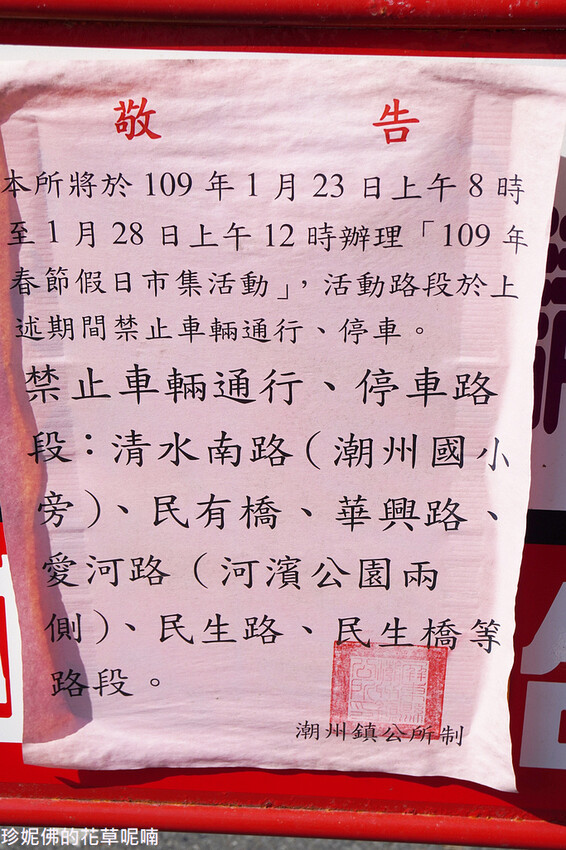 敬 告
本所將於 109 年 1 月 23 日上午 8 時
至 1 月 28 日上午 12 時辦理「109 年
春節假日市集活動」，活動路段於上
述期間禁止車輛通行、停車。
禁止車輛通行、停車路
段：清水南路（潮州國小
旁）、民有橋、華興路、
愛河路（河濱公園兩
側）、民生路、民生橋等
路段。
潮州鎮公所制
珍妮佛的花草呢喃